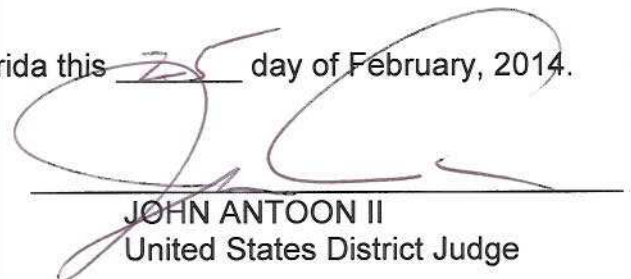 rida this 25 day of February, 2014.
JOHN ANTOON II
United States District Judge